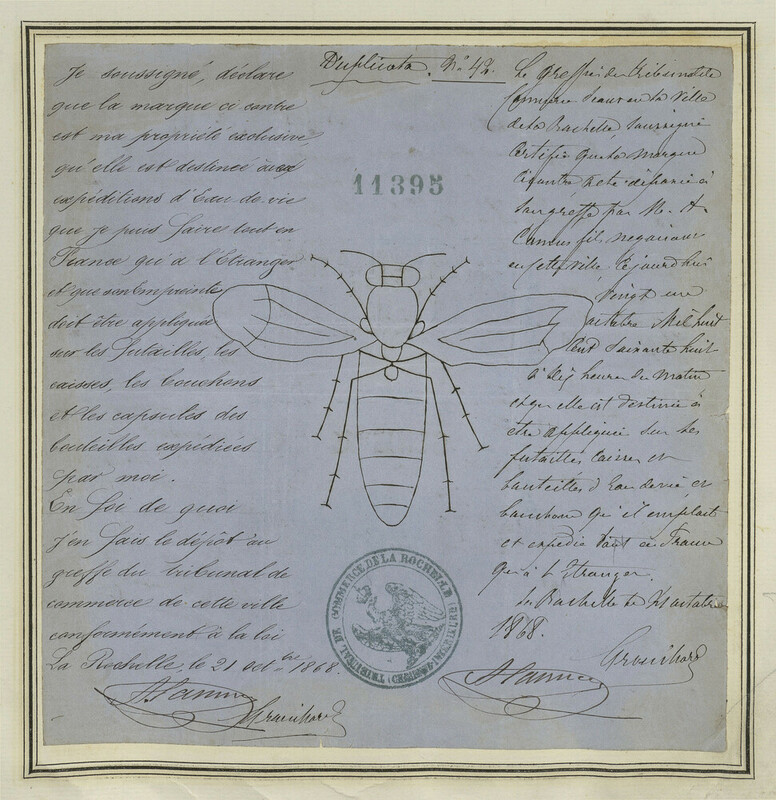 Duplicata. N° 42.
11395
Je soussigné, déclare
que la marque ci contre
est ma propriété exclusive,
qu'elle est destinée aux
expéditions d'Eau de vie
que je puis faire tant en
France qu'à l'Etranger
et que son Empreinte
doit être appliquée
sur les futailles, les
caisses, les bouchons
et les capsules des
bouteilles expédiées
par moi.
En foi de quoi
j'en fais le dépôt au
greffe du tribunal de
commerce de cette ville
conformément à la loi
La Rochelle, le 21 octbre 1868.
Le greffier du tribunal de
Commerce séant en la Ville
de La Rochelle, soussigné
Certifie que la marque
Ci contre, a été déposée à
son greffe par M. A.
Camus fils, négociant
en cette ville, Cejourd'hui
Vingt une
octobre Mil huit
Cent soixante huit
à dix heures du matin
et qu'elle est destinée à
être appliquée sur les
futailles Caisses et
bouteilles d'Eau de vie et
bouchons qu'il emploit
et expédie tant en France
qu'à l'Etranger.
La Rochelle le 21 octobre
1868.
TRIBUNAL DE COMMERCE DE LA ROCHELLE